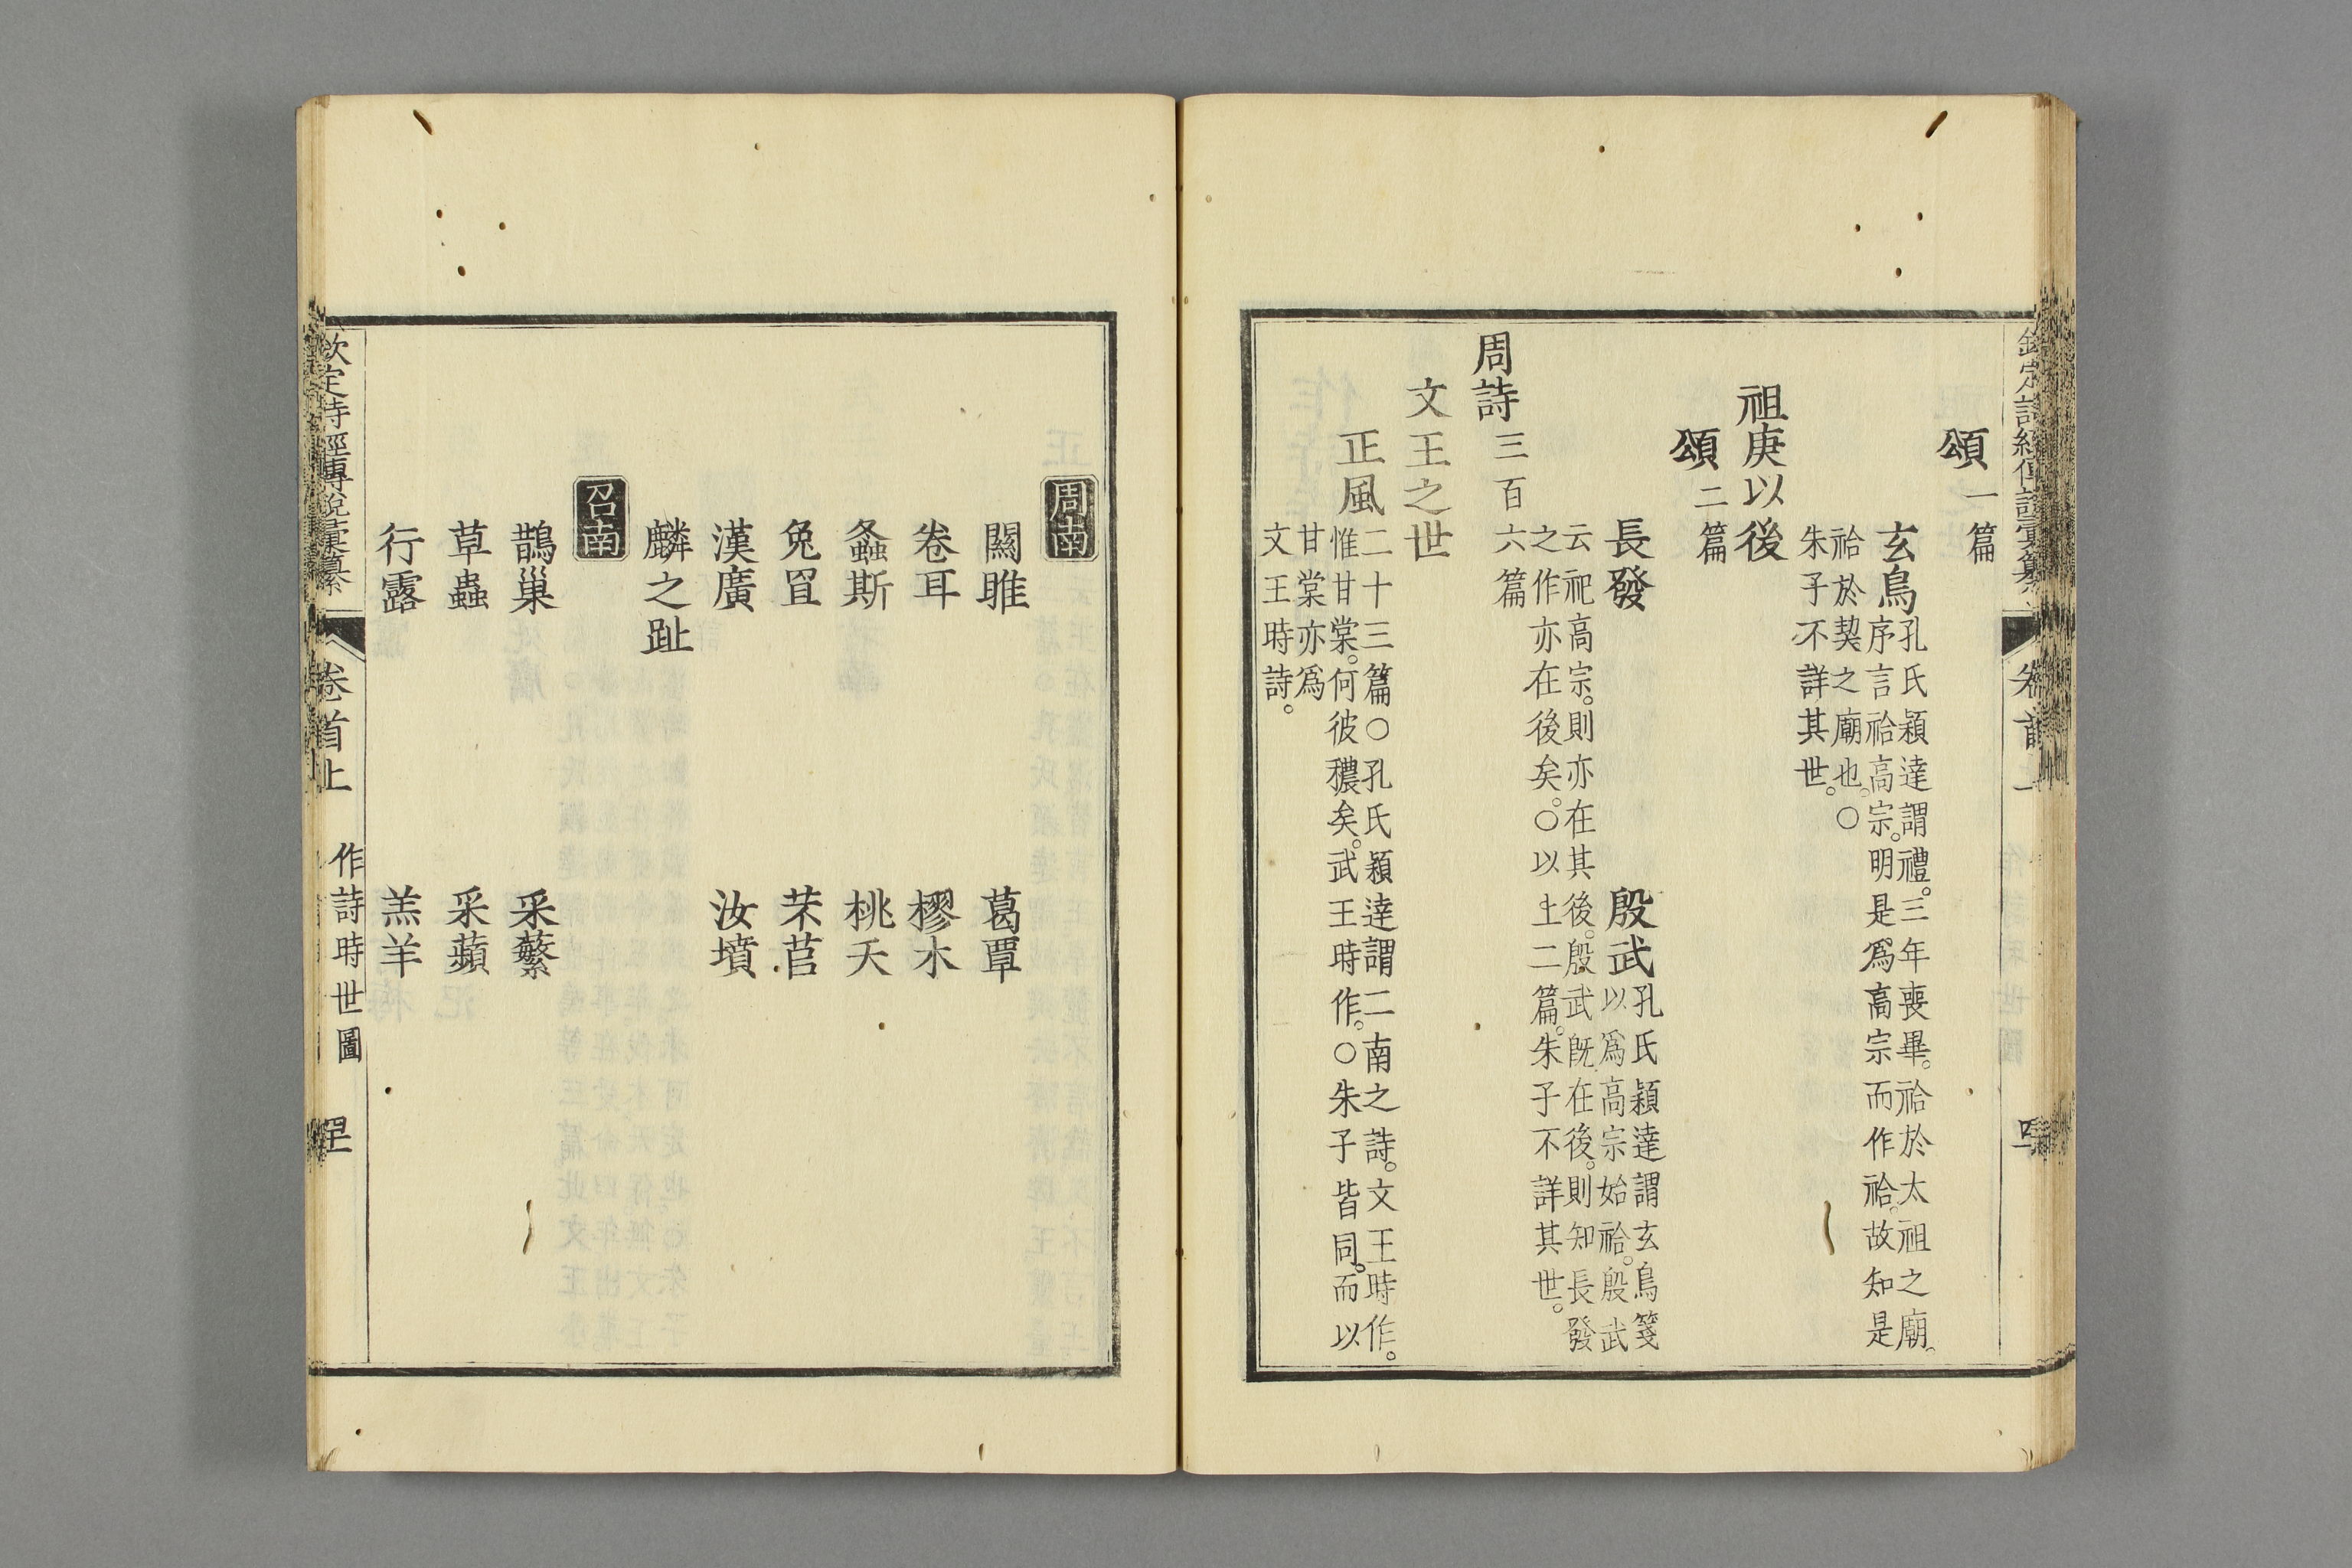 欽定詩經傳說彙纂
卷首
頌一篇
玄鳥
孔氏穎達謂禮。三年喪畢。祫於太祖之廟。
序言祫高宗。明是爲高宗而作祫。故知是
祫於契之廟也。○
朱子不詳其世。
祖庚以後
頌二篇
長發
殷武
孔氏穎達謂玄鳥箋
以爲高宗始祫。殷武
云祀高宗。則亦在其後。殷武既在後。則知長發
之作亦在後矣。○以上二篇。朱子不詳其世。
周詩三百六篇
文王之世
正風
二十三篇○孔氏穎達謂二南之詩。文王時作。
惟甘棠。何彼穠矣。武王時作。○朱子皆同。而以
甘棠亦爲
文王時詩。
周南
關雎 葛覃
卷耳 樛木
螽斯 桃夭
兔罝 芣苢
漢廣 汝墳
麟之趾
召南
鵲巢 采蘩
草蟲 采蘋
行露 羔羊
欽定詩經傳說彙纂 卷首上 作詩時世圖